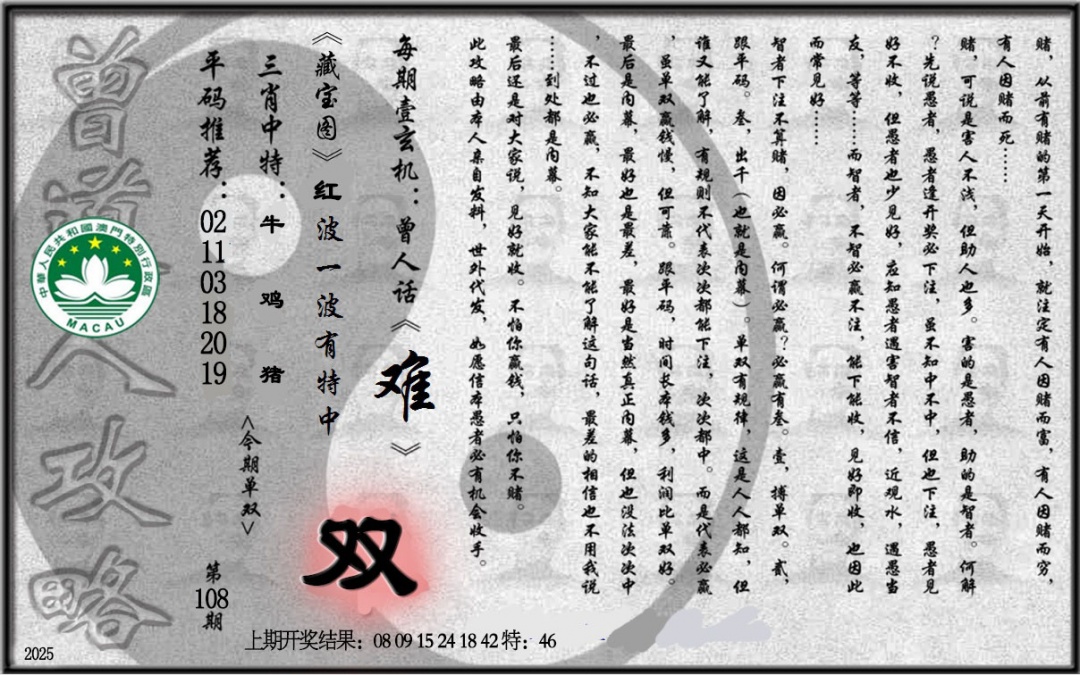 赌，从前有赌的第一天开始，就注定有人因赌而富，有人因赌而穷，
有人因赌而死……
赌，可说是害人不浅，但助人也多。害的是愚者，助的是智者。何解
？先说愚者，愚者逢开奖必下注，虽不知中不中，但也下注，愚者见
好不收，但愚者也少见好，应知愚者遇害智者不信，近观水，遇愚当
友，等等……而智者，不智必赢不注，能下能收，见好即收，也因此
而常见好……
智者下注不算赌，因必赢。何谓必赢？必赢有叁。壹，搏单双。贰，
跟平码。叁，出千（也就是内幕）。单双有规律，这是人人都知，但
谁又能了解，有规则不代表次次都能下注，次次都中。而是代表必赢
，虽单双赢钱慢，但可靠。跟平码，时间长本钱多，利润比单双好。
最后是内幕，最好也是最差，最好是当然真正内幕，但也没法次次中
，不过也必赢，不知大家能不能了解这句话，最差的相信也不用我说
……到处都是内幕。
最后还是对大家说，见好就收。不怕你赢钱，只怕你不赌。
此攻略由本人亲自发料，世外代发，如愿信本愚者必有机会收手。
每期壹玄机：曾人话《难》
《藏宝图》红波一波有特中
双
三肖中特：牛鸡猪
<今期单双>
平码推荐：02 11 03 18 20 19
第108期
曾道人攻略
中華人民共和國澳門特別行政區
MACAU
上期开奖结果：08 09 15 24 18 42 特：46
2025